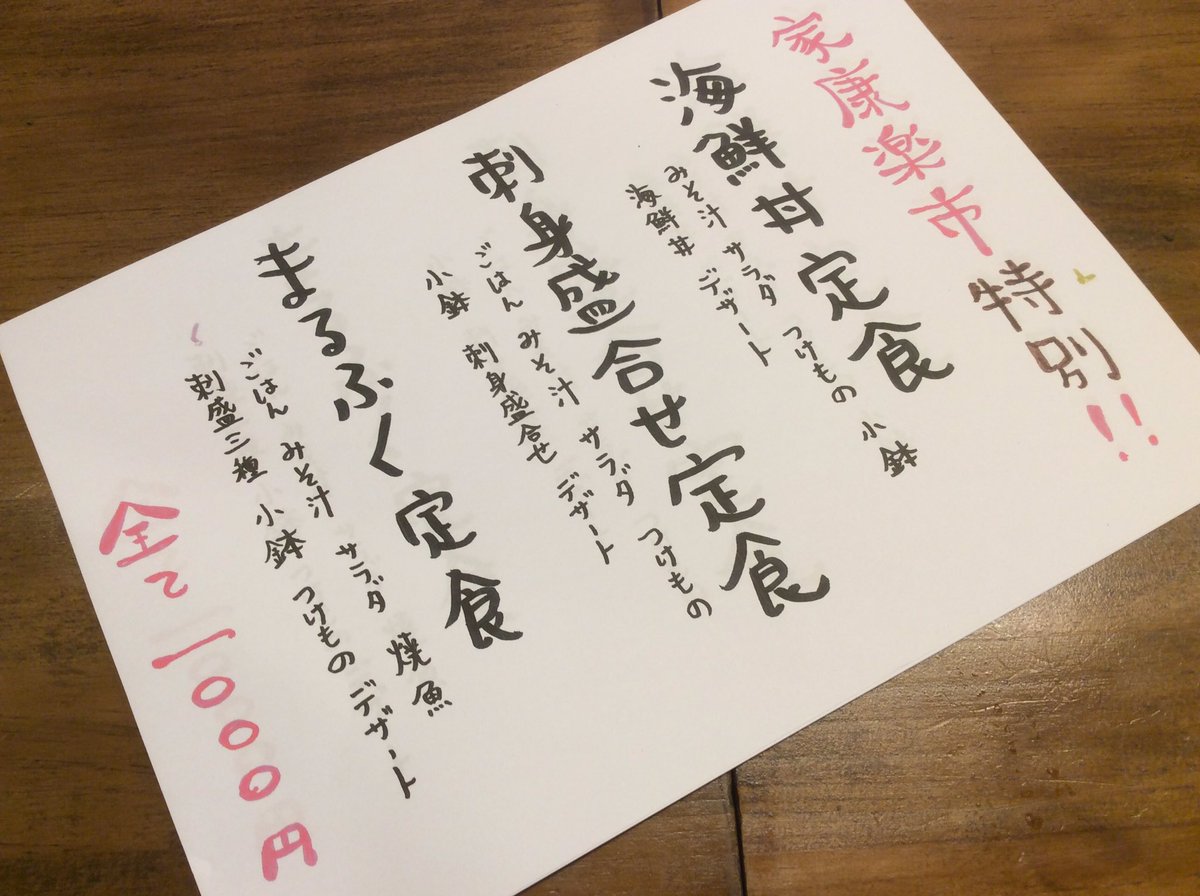 家康楽市特別!!
海鮮丼定食
みそ汁 サラダ つけもの 小鉢
海鮮丼 デザート
刺身盛合せ定食
ごはん みそ汁 サラダ つけもの
小鉢 刺身盛合せ デザート
まるふく定食
ごはん みそ汁 サラダ 焼魚
刺盛三種 小鉢 つけもの デザート
全て一000円